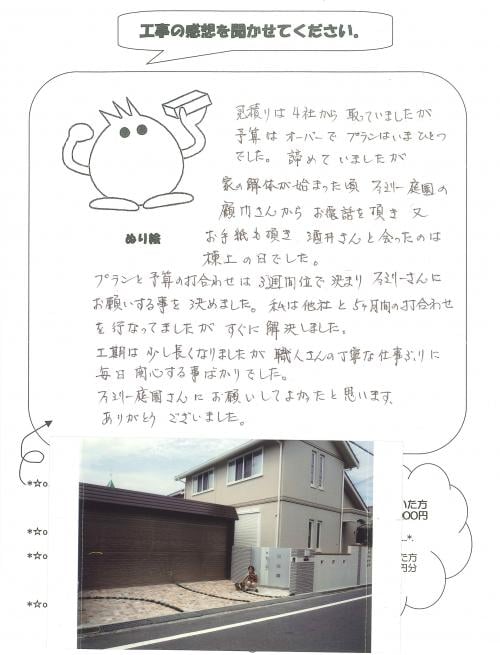 工事の感想を聞かせてください。
見積りは4社から取っていましたが
予算はオーバーでプランはいまひとつ
でした。諦めていましたが
家の解体が始まった頃 ファミリー庭園の
さんからお電話を頂き 又
お手紙も頂き 酒井さんと会ったのは
棟上の日でした。
ぬり絵
プランと予算の打合わせは3週間位で決まり ファミリーさんに
お願いする事を決めました。私は他社と5ヶ月間の打合わせ
を行なってましたが すぐに解決しました。
工期は少し長くなりましたが 職人さんの丁寧な仕事ぶりに
毎日関心する事ばかりでした。
ファミリー庭園さんにお願いしてよかったと思います。
ありがとうございました。
*☆o
いた方
00円
*☆o
*☆o
た方
円分
*☆o